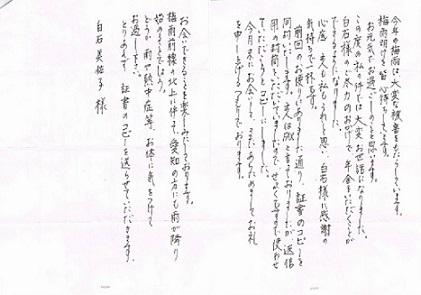 今年の梅雨は大変な被害をもたらしています。
梅雨明けを皆心待ちしてます。
お元気でお過ごしのことと思います。
この度の私の件では大変お世話になりました。
白石様のご尽力のおかげで年金をいただくことが
できるようになりました。
心底、夫も私もうれしく思い、白石様に感謝の
気持ちで一杯です。
前回のお便りにありました通り、証書のコピーを
同封いたします。主人はFAXと言っておりましたが返信
用の封筒をいただいていましたので、せっかくですので使わせ
ていただこうとコピーにしました。
今月末にお会いして、またあらためましてお礼
を申し上げるつもりでおります。
お会いできることを楽しみにしております。
梅雨前線の北上に伴って愛知の方にも雨が降り
始めるでしょう。
どうか雨や熱中症等、お体に気をつけて
お過し下さい。
とりあえず、証書のコピーを送らせていただきます。
白石美佐子様